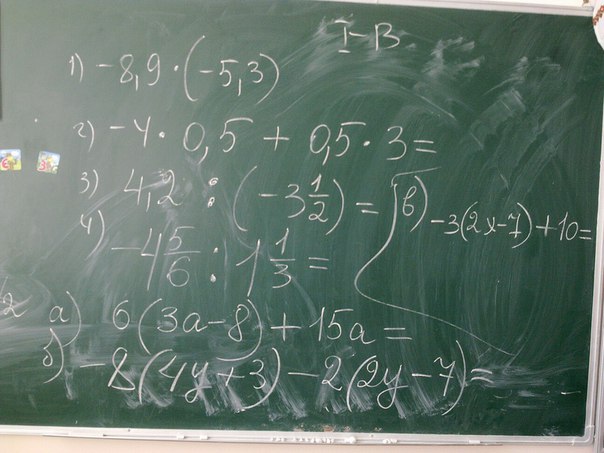 I-В
1) -8,9 · (-5,3)
2) -4 · 0,5 + 0,5 · 3 =
3) 4,2 : (-3 1/2) =
4) -4 5/6 : 1 1/3 =
в) -3(2x-7)+10=
а) 6(3a-8)+15a=
б) -8(4y+3)-2(2y-7)=